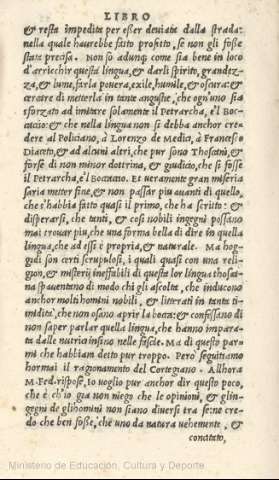 LIBRO
& resta impedita per esser deuiata dalla strada:
nella quale haurebbe fatto profitto, se non gli fosse
stata precisa. Non so adunq; come sia bene in loco
d'arricchir questa lingua, & darli spirito, grandez-
za, & lume, farla pouera, exile, humile, & oscura: &
cercare di metterla in tante angustie, che ogn'uno sia
sforzato ad imitare solamente il Petrarcha, e'l Boc-
caccio: & che nella lingua non si debba anchor cre-
dere al Policiano, à Lorenzo de Medici, à Francesco
Diaceto, & ad alcuni altri, che pur sono Thoscani, &
forse di non minor dottrina, & giudicio, che si fosse
il Petrarcha, e'l Boccaccio. Et ueramente gran miseria
saria metter fine, & non passar piu auanti di quello,
che s'habbia fatto quasi il primo, che ha scritto: &
disperarsi, che tanti, & cosi nobili ingegni possano
mai trouar piu, che una forma bella di dire in quella
lingua, che ad essi è propria, & naturale. Ma hog-
gidi son certi scrupulosi, i quali quasi con una reli-
gion, & misterij ineffabili di questa lor lingua thosca-
na spauentano di modo chi gli ascolta, che inducono
anchor molti homini nobili, & litterati in tanta ti-
midita, che non osano aprir la bocca: & confessano di
non saper parlar quella lingua, che hanno impara-
ta dalle nutrici insino nelle fascie. Ma di questo par-
mi che habbiam detto pur troppo. Però seguitiamo
hormai il ragionamento del Cortegiano. Allhora
M. Fed. rispose, Io uoglio pur anchor dir questo poco,
che è ch'io gia non niego che le opinioni, & glin-
gegni de glihomini non siano diuersi tra se: ne cre-
do che ben fosse, che uno da natura uehemente, &
concitato,
Ministerio de Educación, Cultura y Deporte